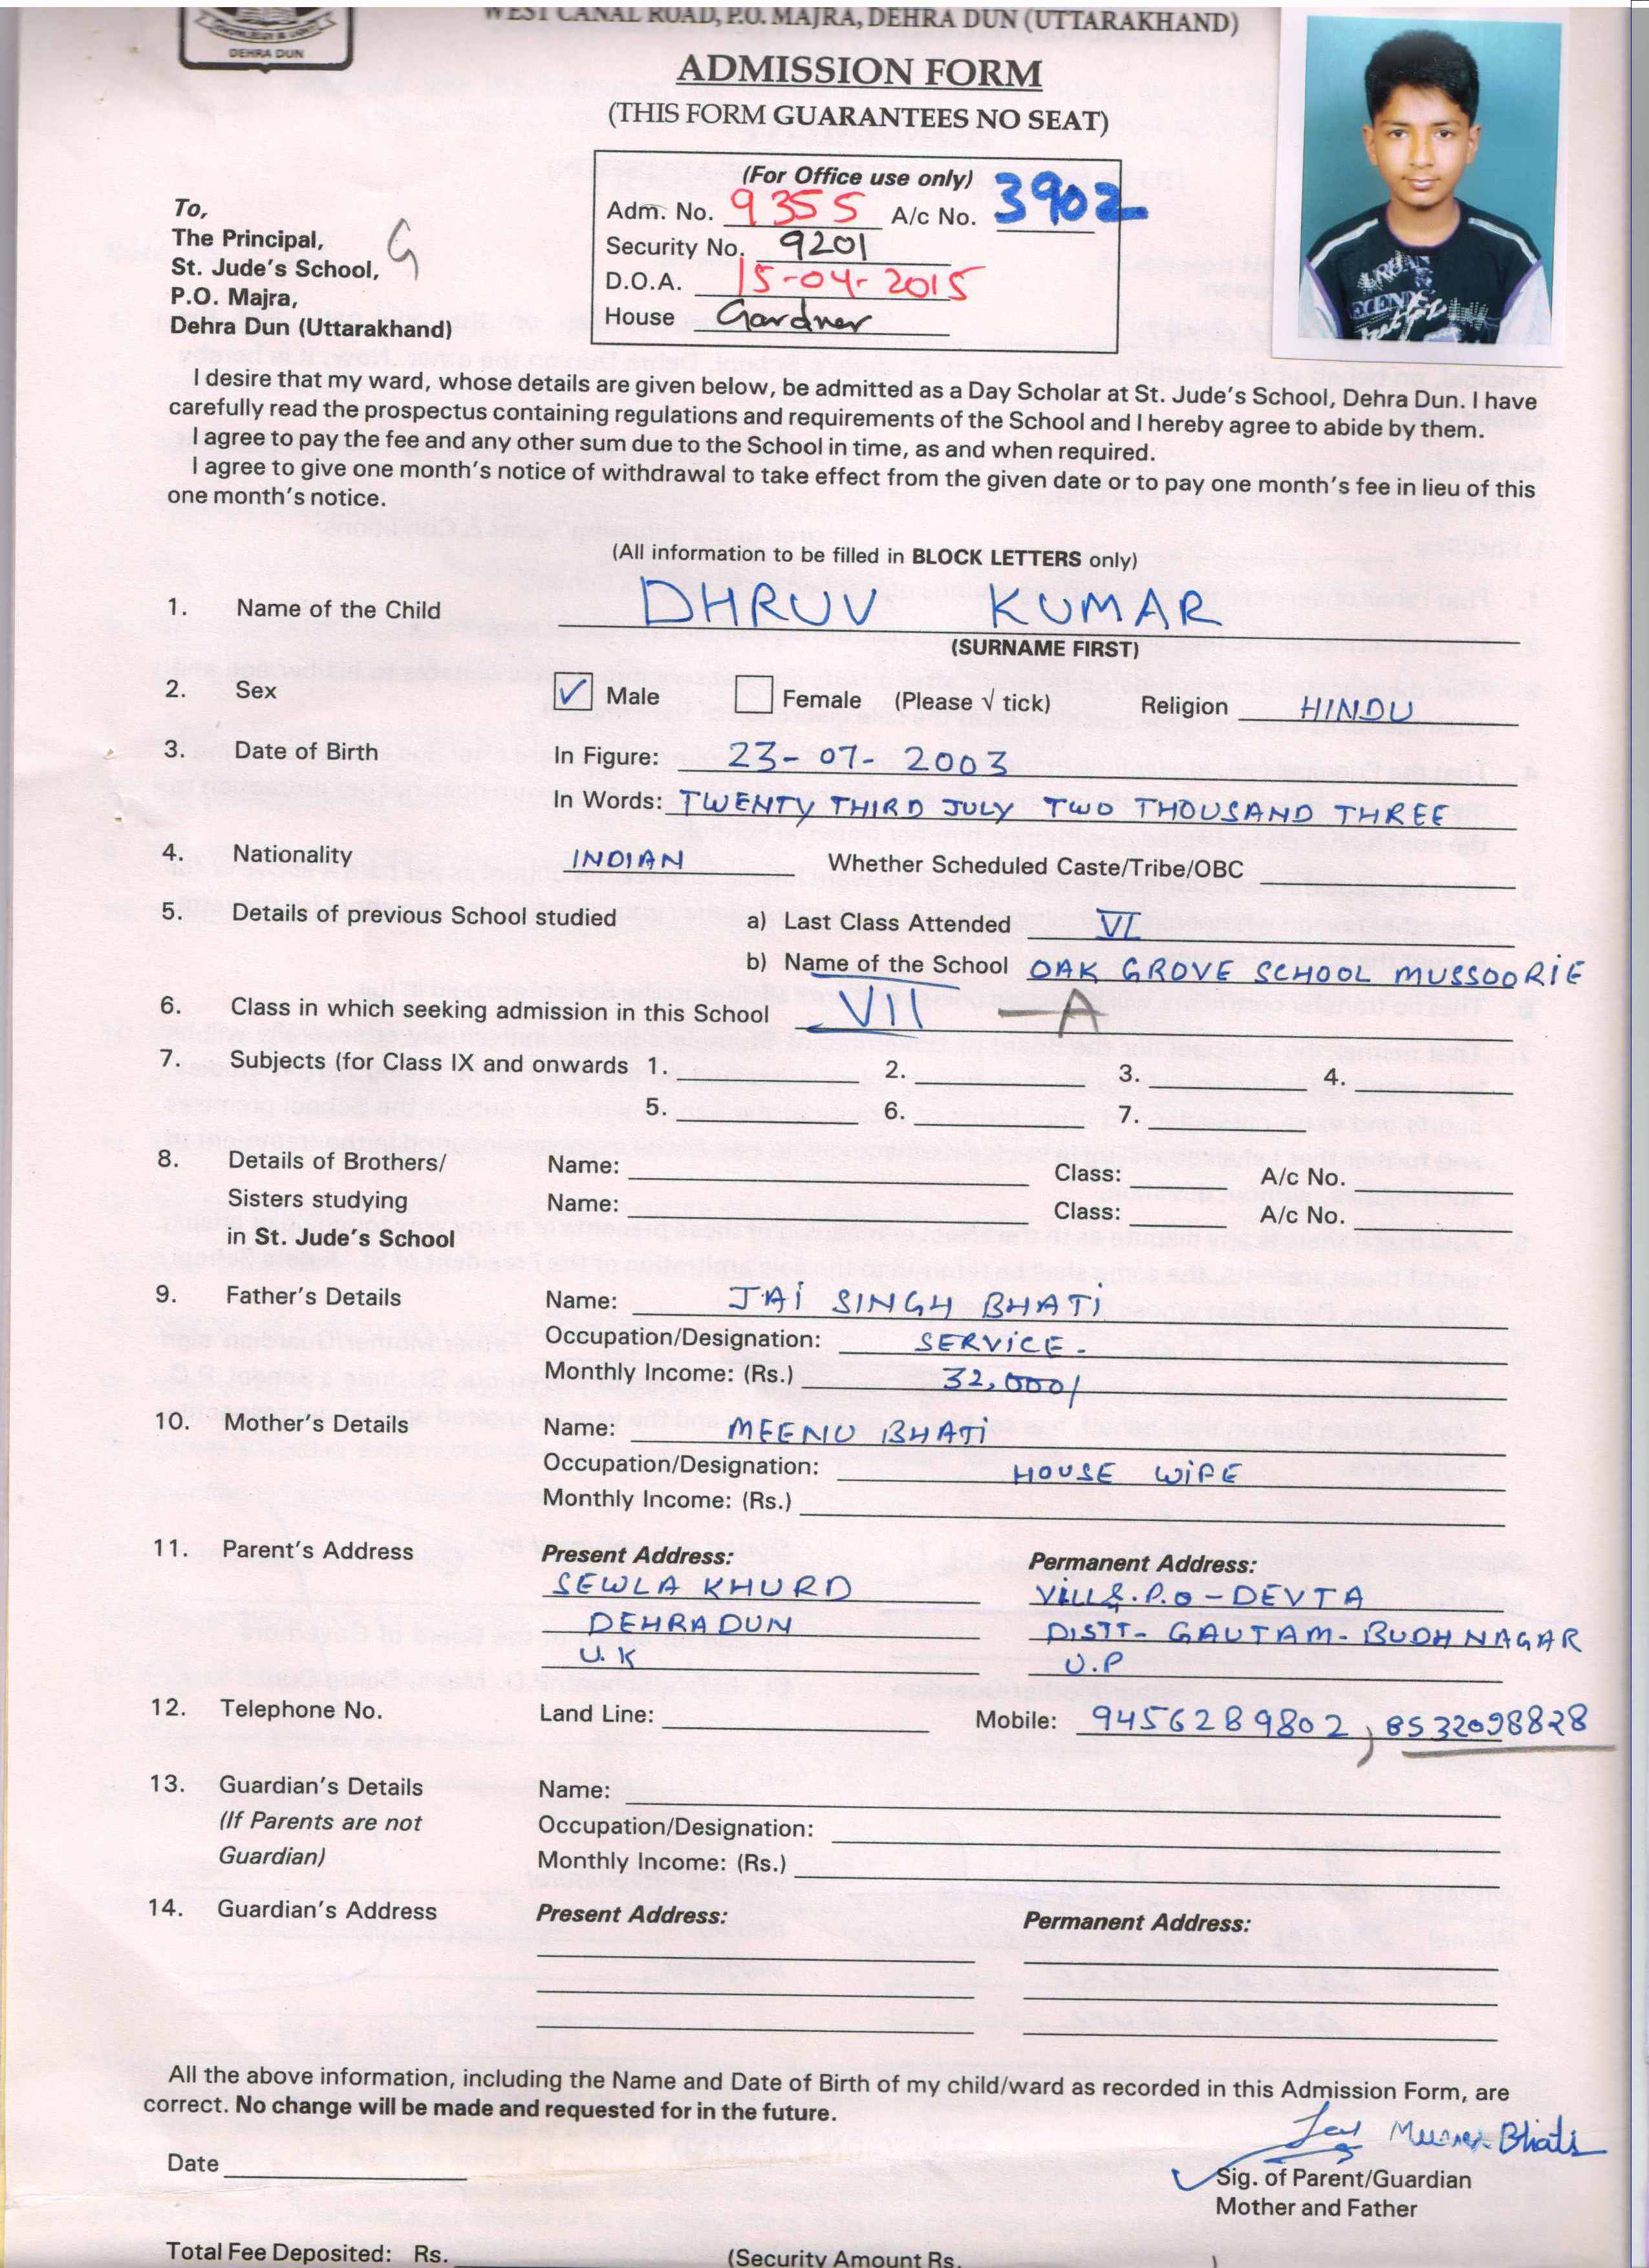 WEST CANAL ROAD, P.O. MAJRA, DEHRA DUN (UTTARAKHAND)
DEHRA DUN
ADMISSION FORM
(THIS FORM GUARANTEES NO SEAT)
(For Office use only)
Adm. No. 9355 A/c No. 3902
Security No. 9201
D.O.A. 15-04-2015
House Gardner
To,
The Principal,
St. Jude's School,
P.O. Majra,
Dehra Dun (Uttarakhand)
G
I desire that my ward, whose details are given below, be admitted as a Day Scholar at St. Jude's School, Dehra Dun. I have
carefully read the prospectus containing regulations and requirements of the School and I hereby agree to abide by them.
I agree to pay the fee and any other sum due to the School in time, as and when required.
I agree to give one month's notice of withdrawal to take effect from the given date or to pay one month's fee in lieu of this
one month's notice.
(All information to be filled in BLOCK LETTERS only)
1. Name of the Child DHRUV KUMAR
(SURNAME FIRST)
2. Sex ✓ Male Female (Please √ tick) Religion HINDU
3. Date of Birth In Figure: 23-07-2003
In Words: TWENTY THIRD JULY TWO THOUSAND THREE
4. Nationality INDIAN Whether Scheduled Caste/Tribe/OBC
5. Details of previous School studied a) Last Class Attended VI
b) Name of the School OAK GROVE SCHOOL MUSSOORIE
6. Class in which seeking admission in this School VII - A
7. Subjects (for Class IX and onwards 1. 2. 3. 4.
5. 6. 7.
8. Details of Brothers/ Name: Class: A/c No.
Sisters studying Name: Class: A/c No.
in St. Jude's School
9. Father's Details Name: JAI SINGH BHATI
Occupation/Designation: SERVICE.
Monthly Income: (Rs.) 32,000/
10. Mother's Details Name: MEENU BHATI
Occupation/Designation: HOUSE WIFE
Monthly Income: (Rs.)
11. Parent's Address Present Address: Permanent Address:
SEWLA KHURD VILL&.P.O-DEVTA
DEHRADUN DISTT- GAUTAM-BUDHNAGAR
U.K U.P
12. Telephone No. Land Line: Mobile: 9456289802, 8532098828
13. Guardian's Details Name:
(If Parents are not Occupation/Designation:
Guardian) Monthly Income: (Rs.)
14. Guardian's Address Present Address: Permanent Address:
All the above information, including the Name and Date of Birth of my child/ward as recorded in this Admission Form, are
correct. No change will be made and requested for in the future.
Bhati
Date Sig. of Parent/Guardian
Mother and Father
Total Fee Deposited: Rs. (Security Amount Rs. )